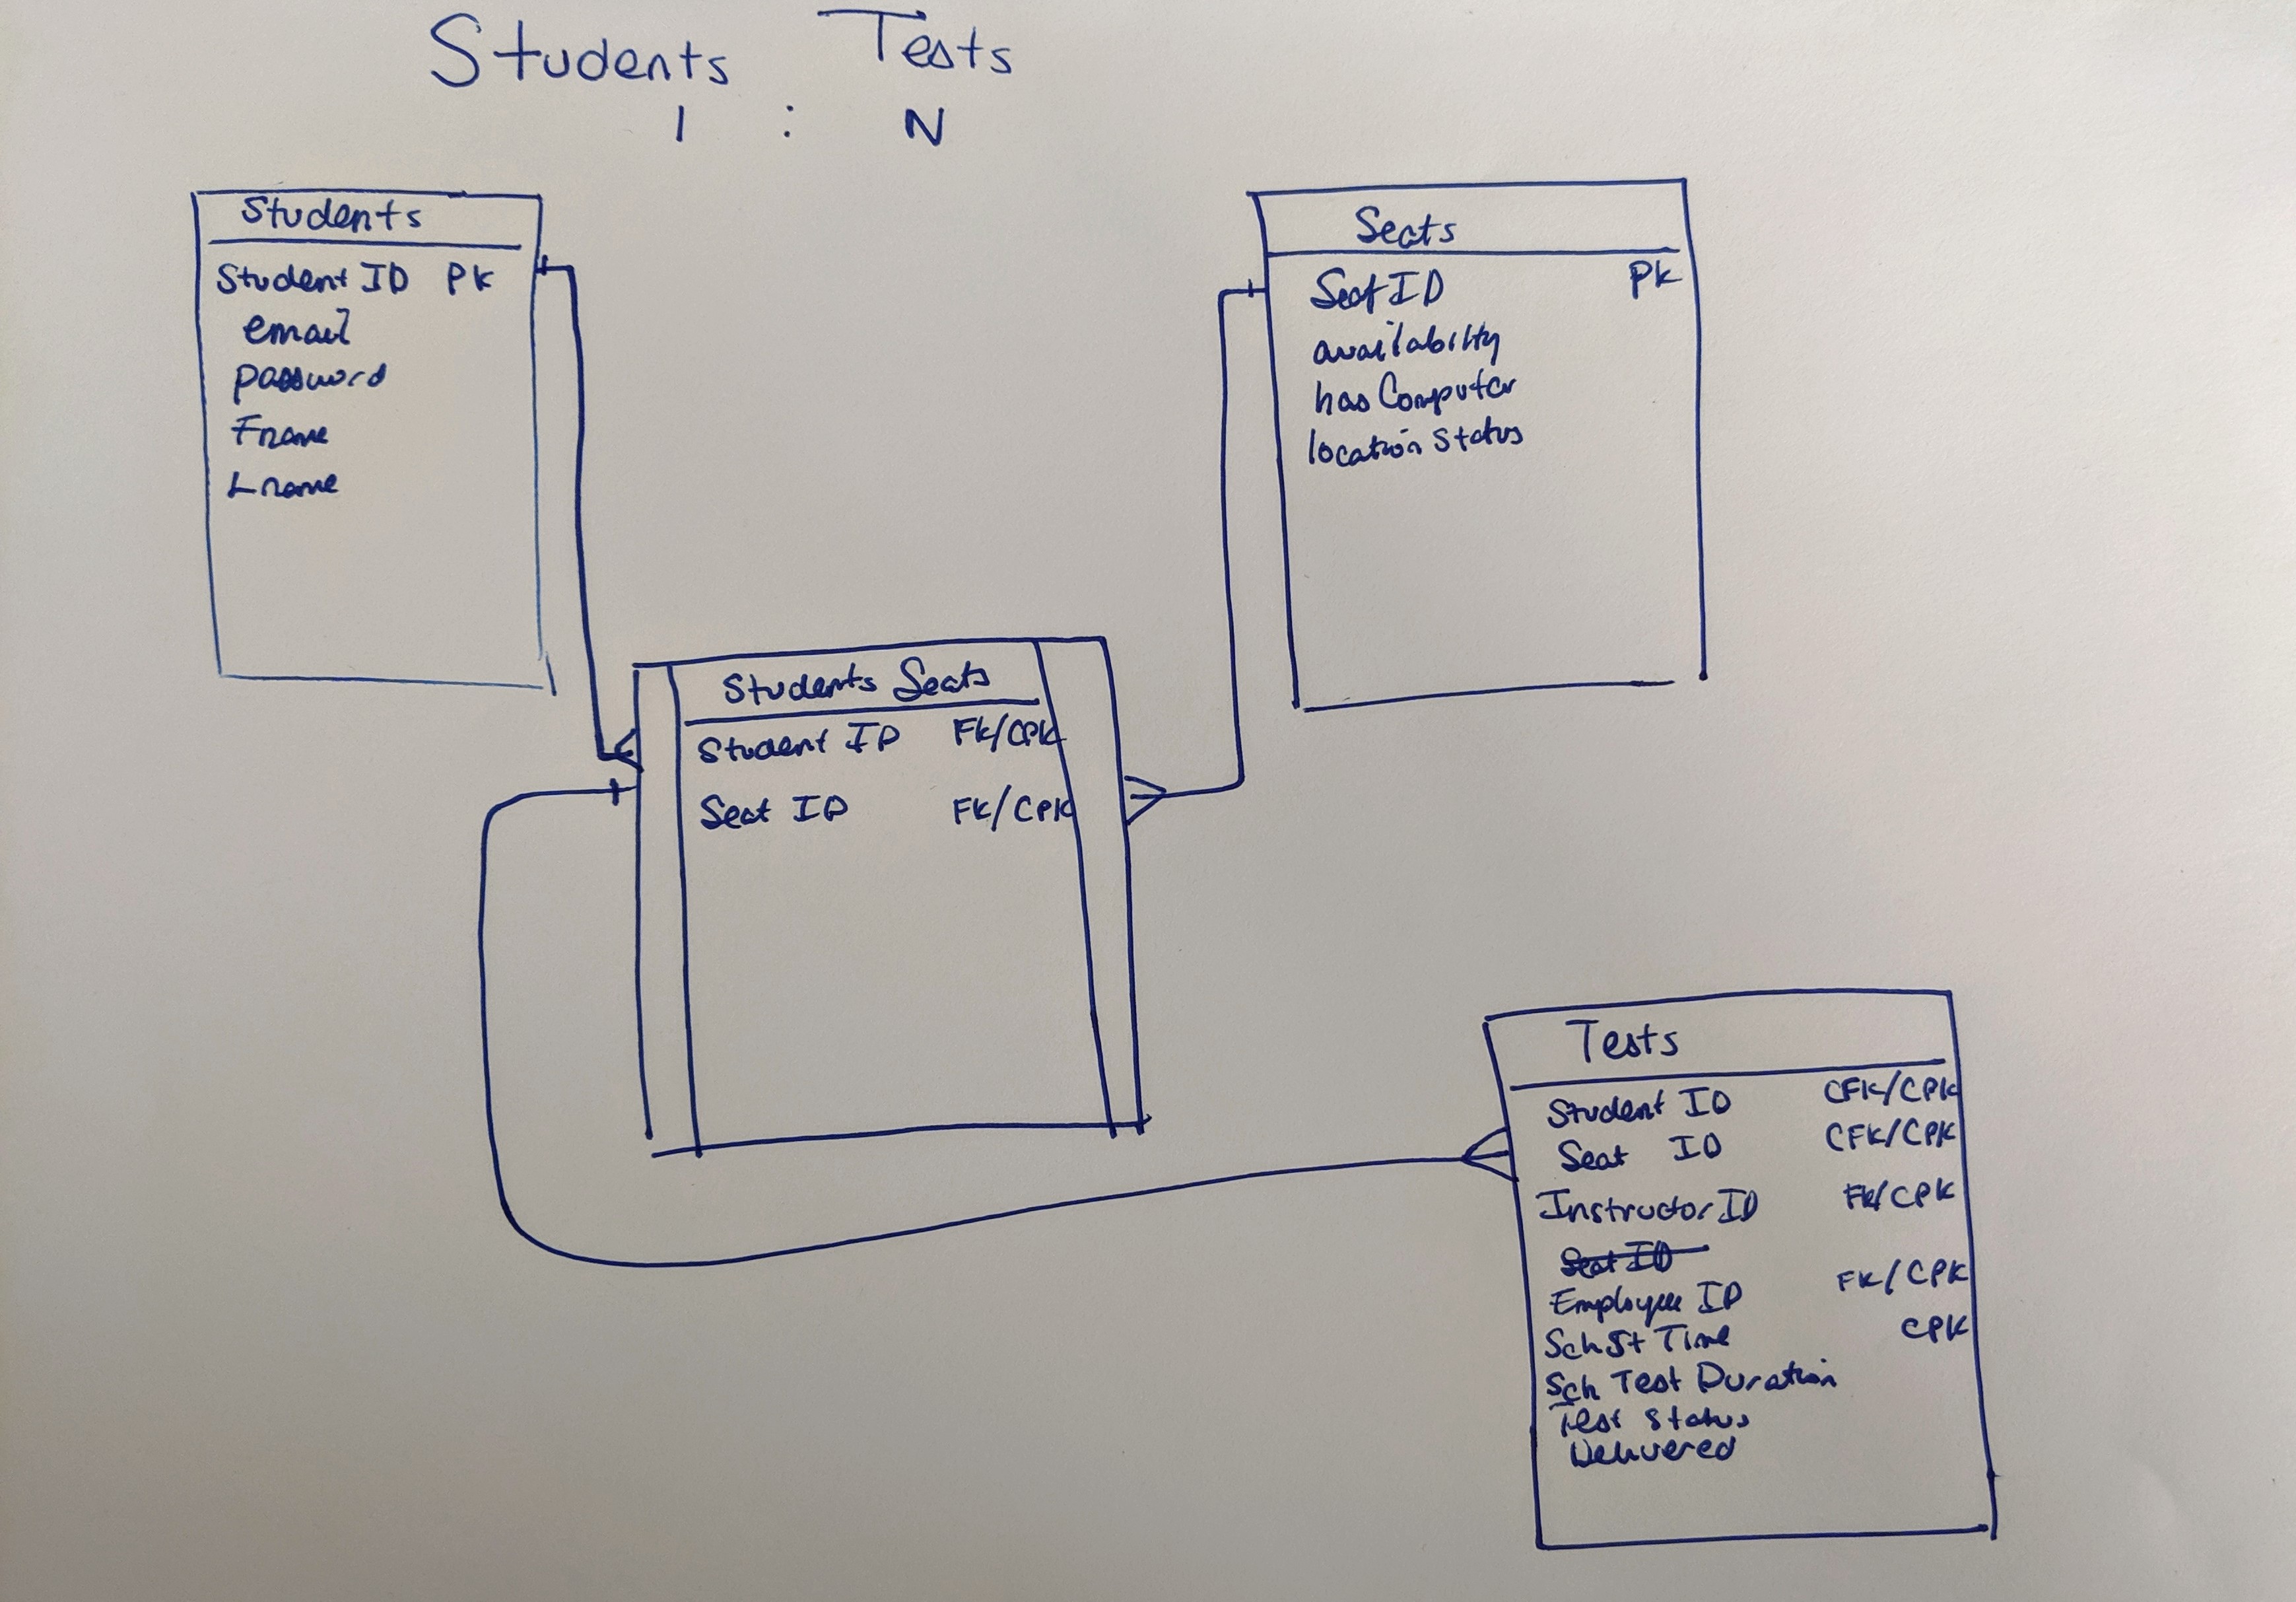 Students Tests
1 : N
Students
Student ID PK
email
password
Fname
Lname
Seats
Seat ID PK
availability
has Computer
location Status
Students Seats
Student ID FK/CPK
Seat ID FK/CPK
Tests
Student ID CFK/CPK
Seat ID CFK/CPK
Instructor ID FK/CPK
Seat ID
Employee ID FK/CPK
Sch St Time CPK
Sch Test Duration
Test Status
Delivered